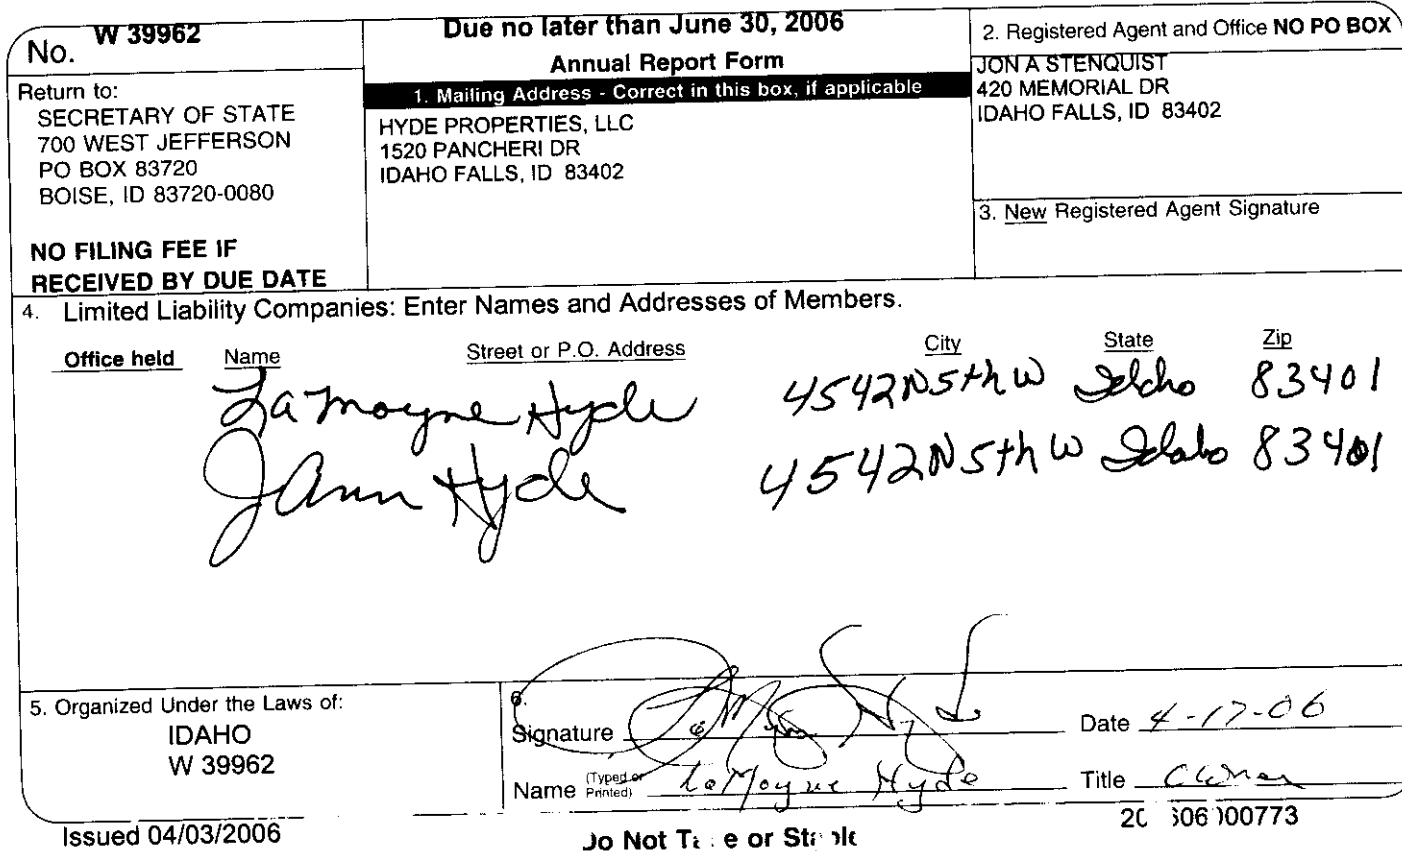 No. W 39962
Return to:
SECRETARY OF STATE
700 WEST JEFFERSON
PO BOX 83720
BOISE, ID 83720-0080
NO FILING FEE IF
RECEIVED BY DUE DATE
Due no later than June 30, 2006
Annual Report Form
1. Mailing Address - Correct in this box, if applicable
HYDE PROPERTIES, LLC
1520 PANCHERI DR
IDAHO FALLS, ID 83402
2. Registered Agent and Office NO PO BOX
JON A STENQUIST
420 MEMORIAL DR
IDAHO FALLS, ID 83402
3. New Registered Agent Signature
4. Limited Liability Companies: Enter Names and Addresses of Members.
Office held Name Street or P.O. Address City State Zip
LaMoyne Hyde 4542 N 5th W Idaho 83401
JAnn Hyde 4542 N 5th W Idaho 83401
5. Organized Under the Laws of:
IDAHO
W 39962
6.
Signature Date 4-17-06
Name (Typed or Printed) LaMoyne Hyde Title Owner
Issued 04/03/2006 Do Not or